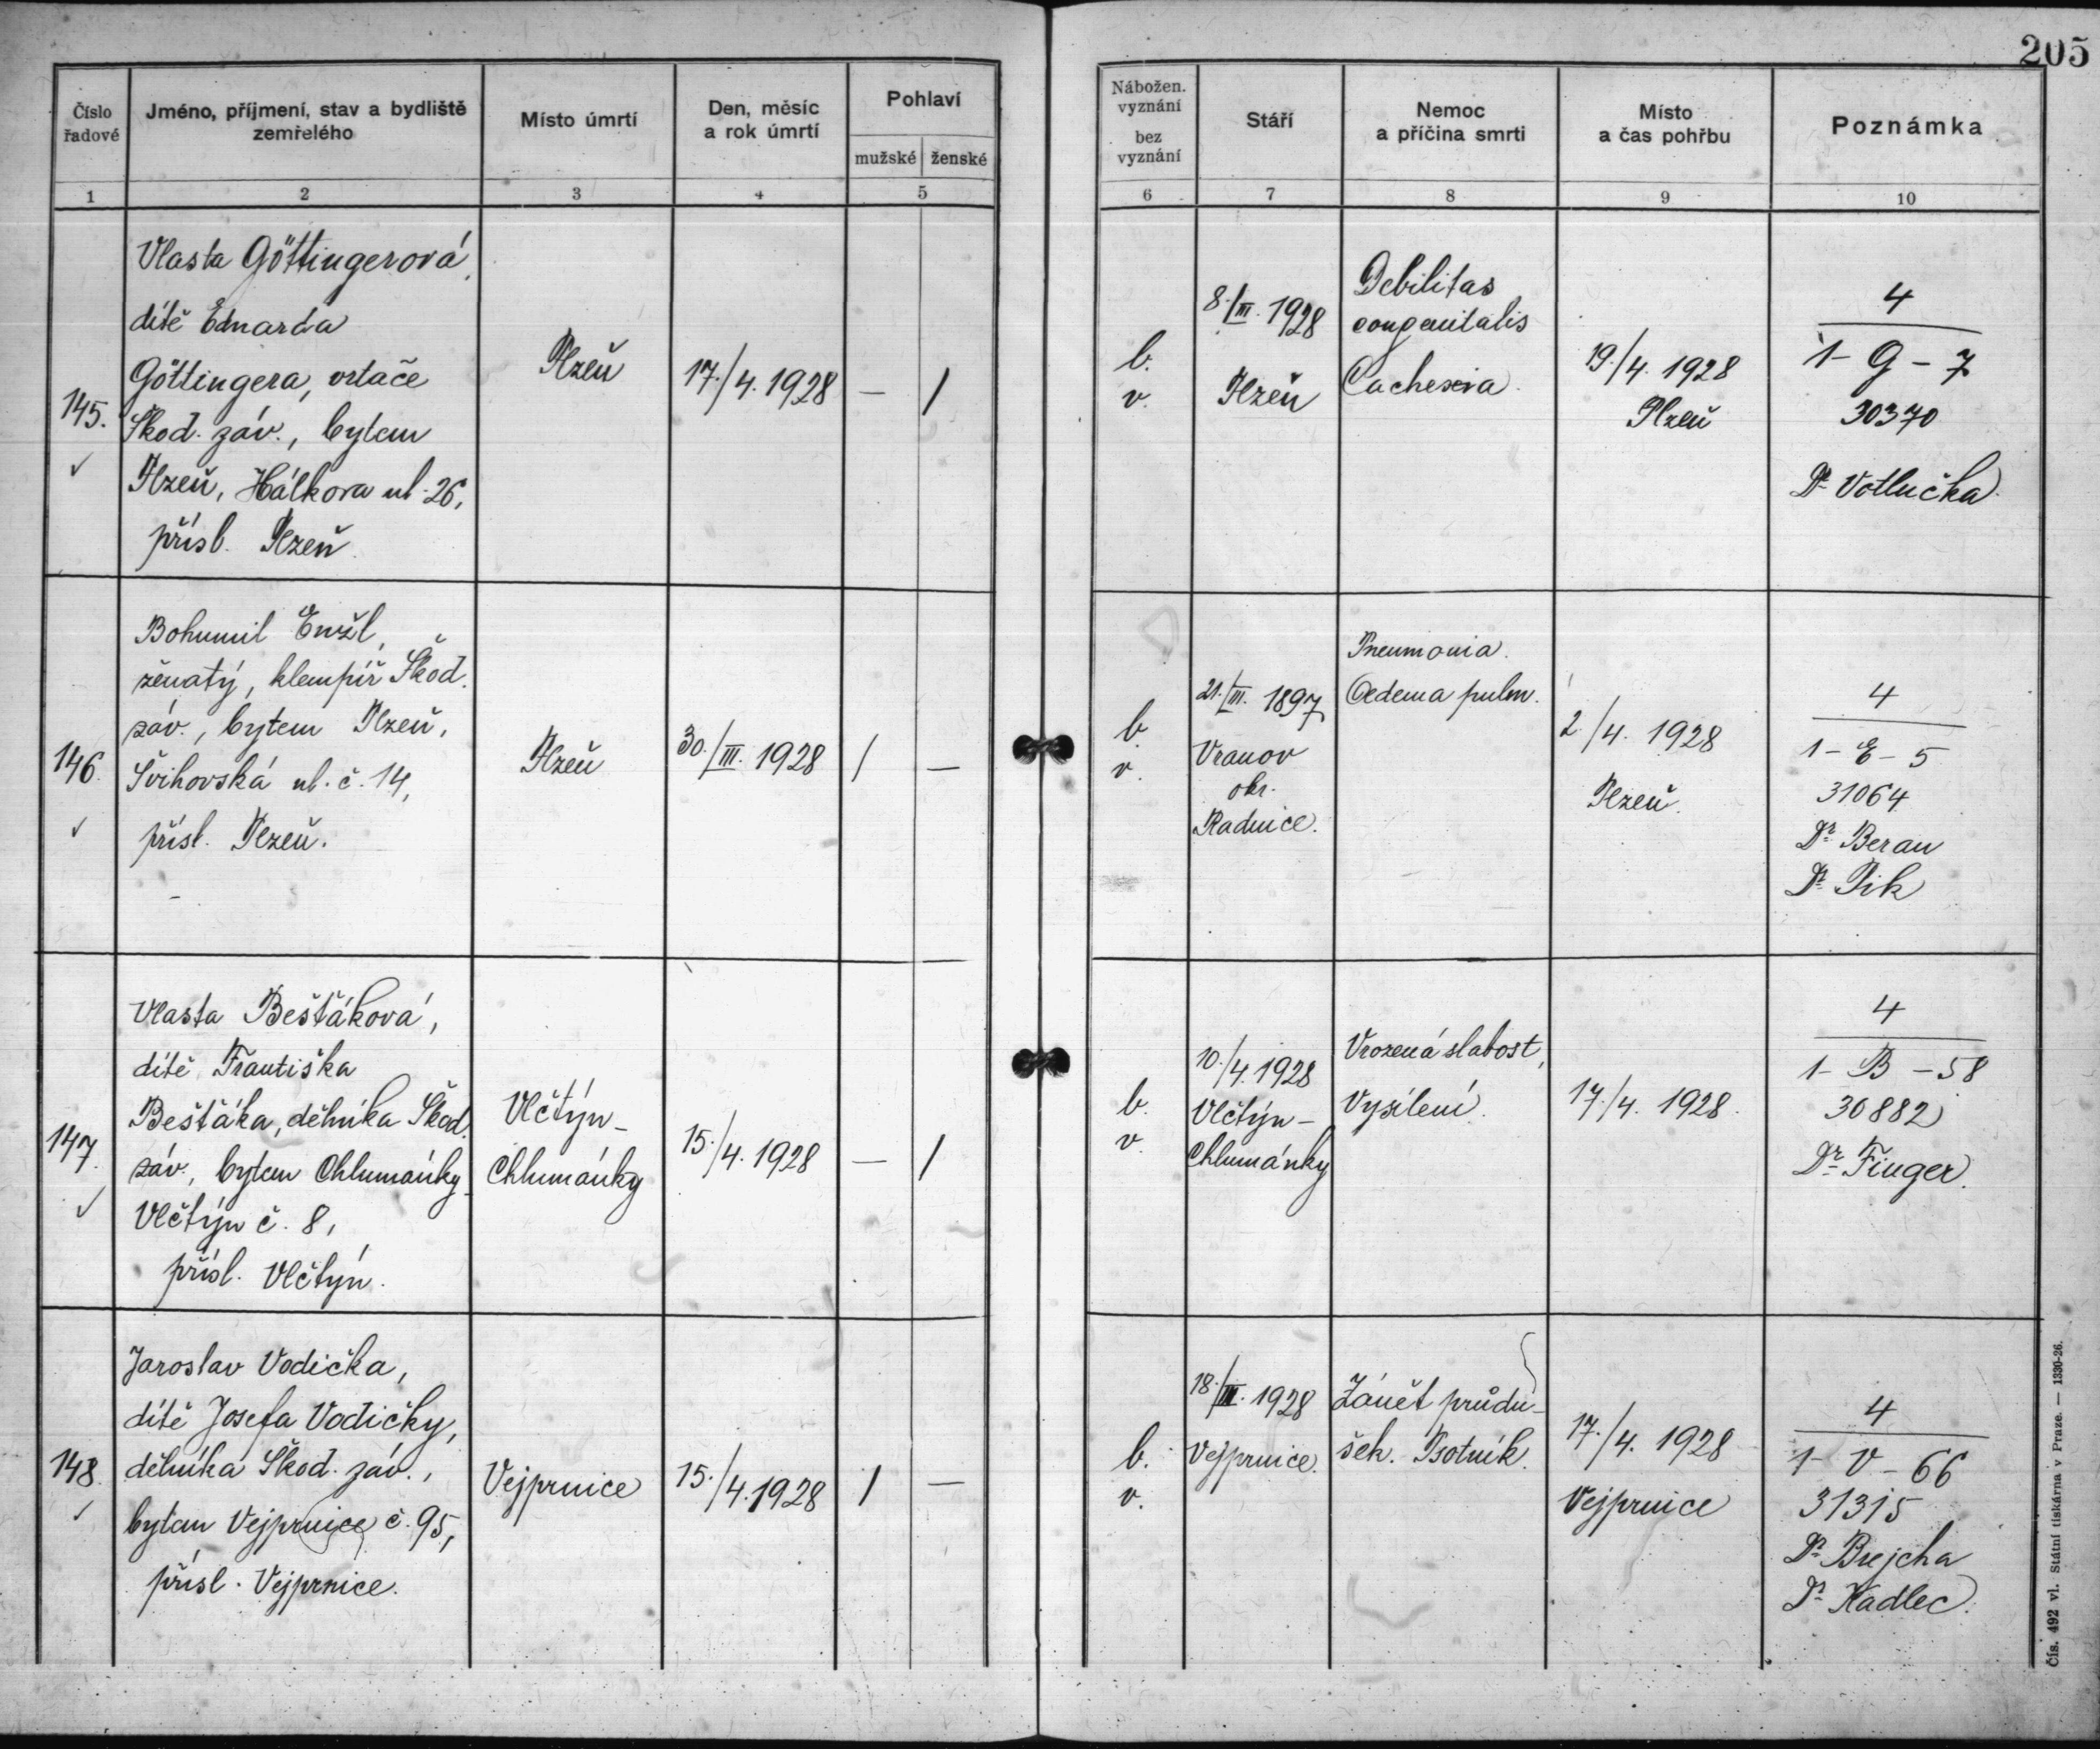 205
Číslo
řadové
Jméno, příjmení, stav a bydliště
zemřelého
Místo úmrtí
Den, měsíc
a rok úmrtí
Pohlaví
mužské ženské
Nábožen.
vyznání
bez
vyznání
Stáří
Nemoc
a příčina smrti
Místo
a čas pohřbu
Poznámka
1 2 3 4 5 6 7 8 9 10
145.
Vlasta Göttingerová,
dítě Eduarda
Göttingera, vrtače
Škod. záv., bytem
Plzeň, Hálkova ul. 26,
přísl. Plzeň.
Plzeň
17./4. 1928
— /
b.
v.
8./III. 1928
Plzeň
Debilitas
congenitalis
Cachexia.
19./4. 1928
Plzeň
4
1 - G - 7
30370
Dr Votlučka.
146.
Bohumil Enžl,
ženatý, klempíř Škod.
záv., bytem Plzeň,
Švihovská ul. č. 14,
přísl. Plzeň.
Plzeň
30./III. 1928
/ —
b.
v.
21./III. 1897
Vranov
okr.
Radnice.
Pneumonia.
Oedema pulm.
2./4. 1928
Plzeň.
4
1 - E - 5
31064
Dr Beran
Dr Pik
147.
Vlasta Bešťáková,
dítě Františka
Bešťáka, dělníka Škod.
záv., bytem Chlumánky-
Vlčtýn č. 8,
přísl. Vlčtýn.
Vlčtýn-
Chlumánky
15./4. 1928
— /
b.
v.
10./4. 1928
Vlčtýn-
Chlumánky
Vrozená slabost,
Vysílení.
17./4. 1928.
4
1 - B - 58
30882
Dr Finger.
148.
Jaroslav Vodička,
dítě Josefa Vodičky,
dělníka Škod. záv.,
bytem Vejprnice č. 95,
přísl. Vejprnice.
Vejprnice
15./4. 1928
/ —
b.
v.
18./III. 1928
Vejprnice.
Zánět průdu-
šek. Psotník.
17./4. 1928
Vejprnice
4
1 - V - 66
31315
Dr Brejcha
Dr Kadlec.
Čís. 492 vl. Státní tiskárna v Praze. — 1330-26.